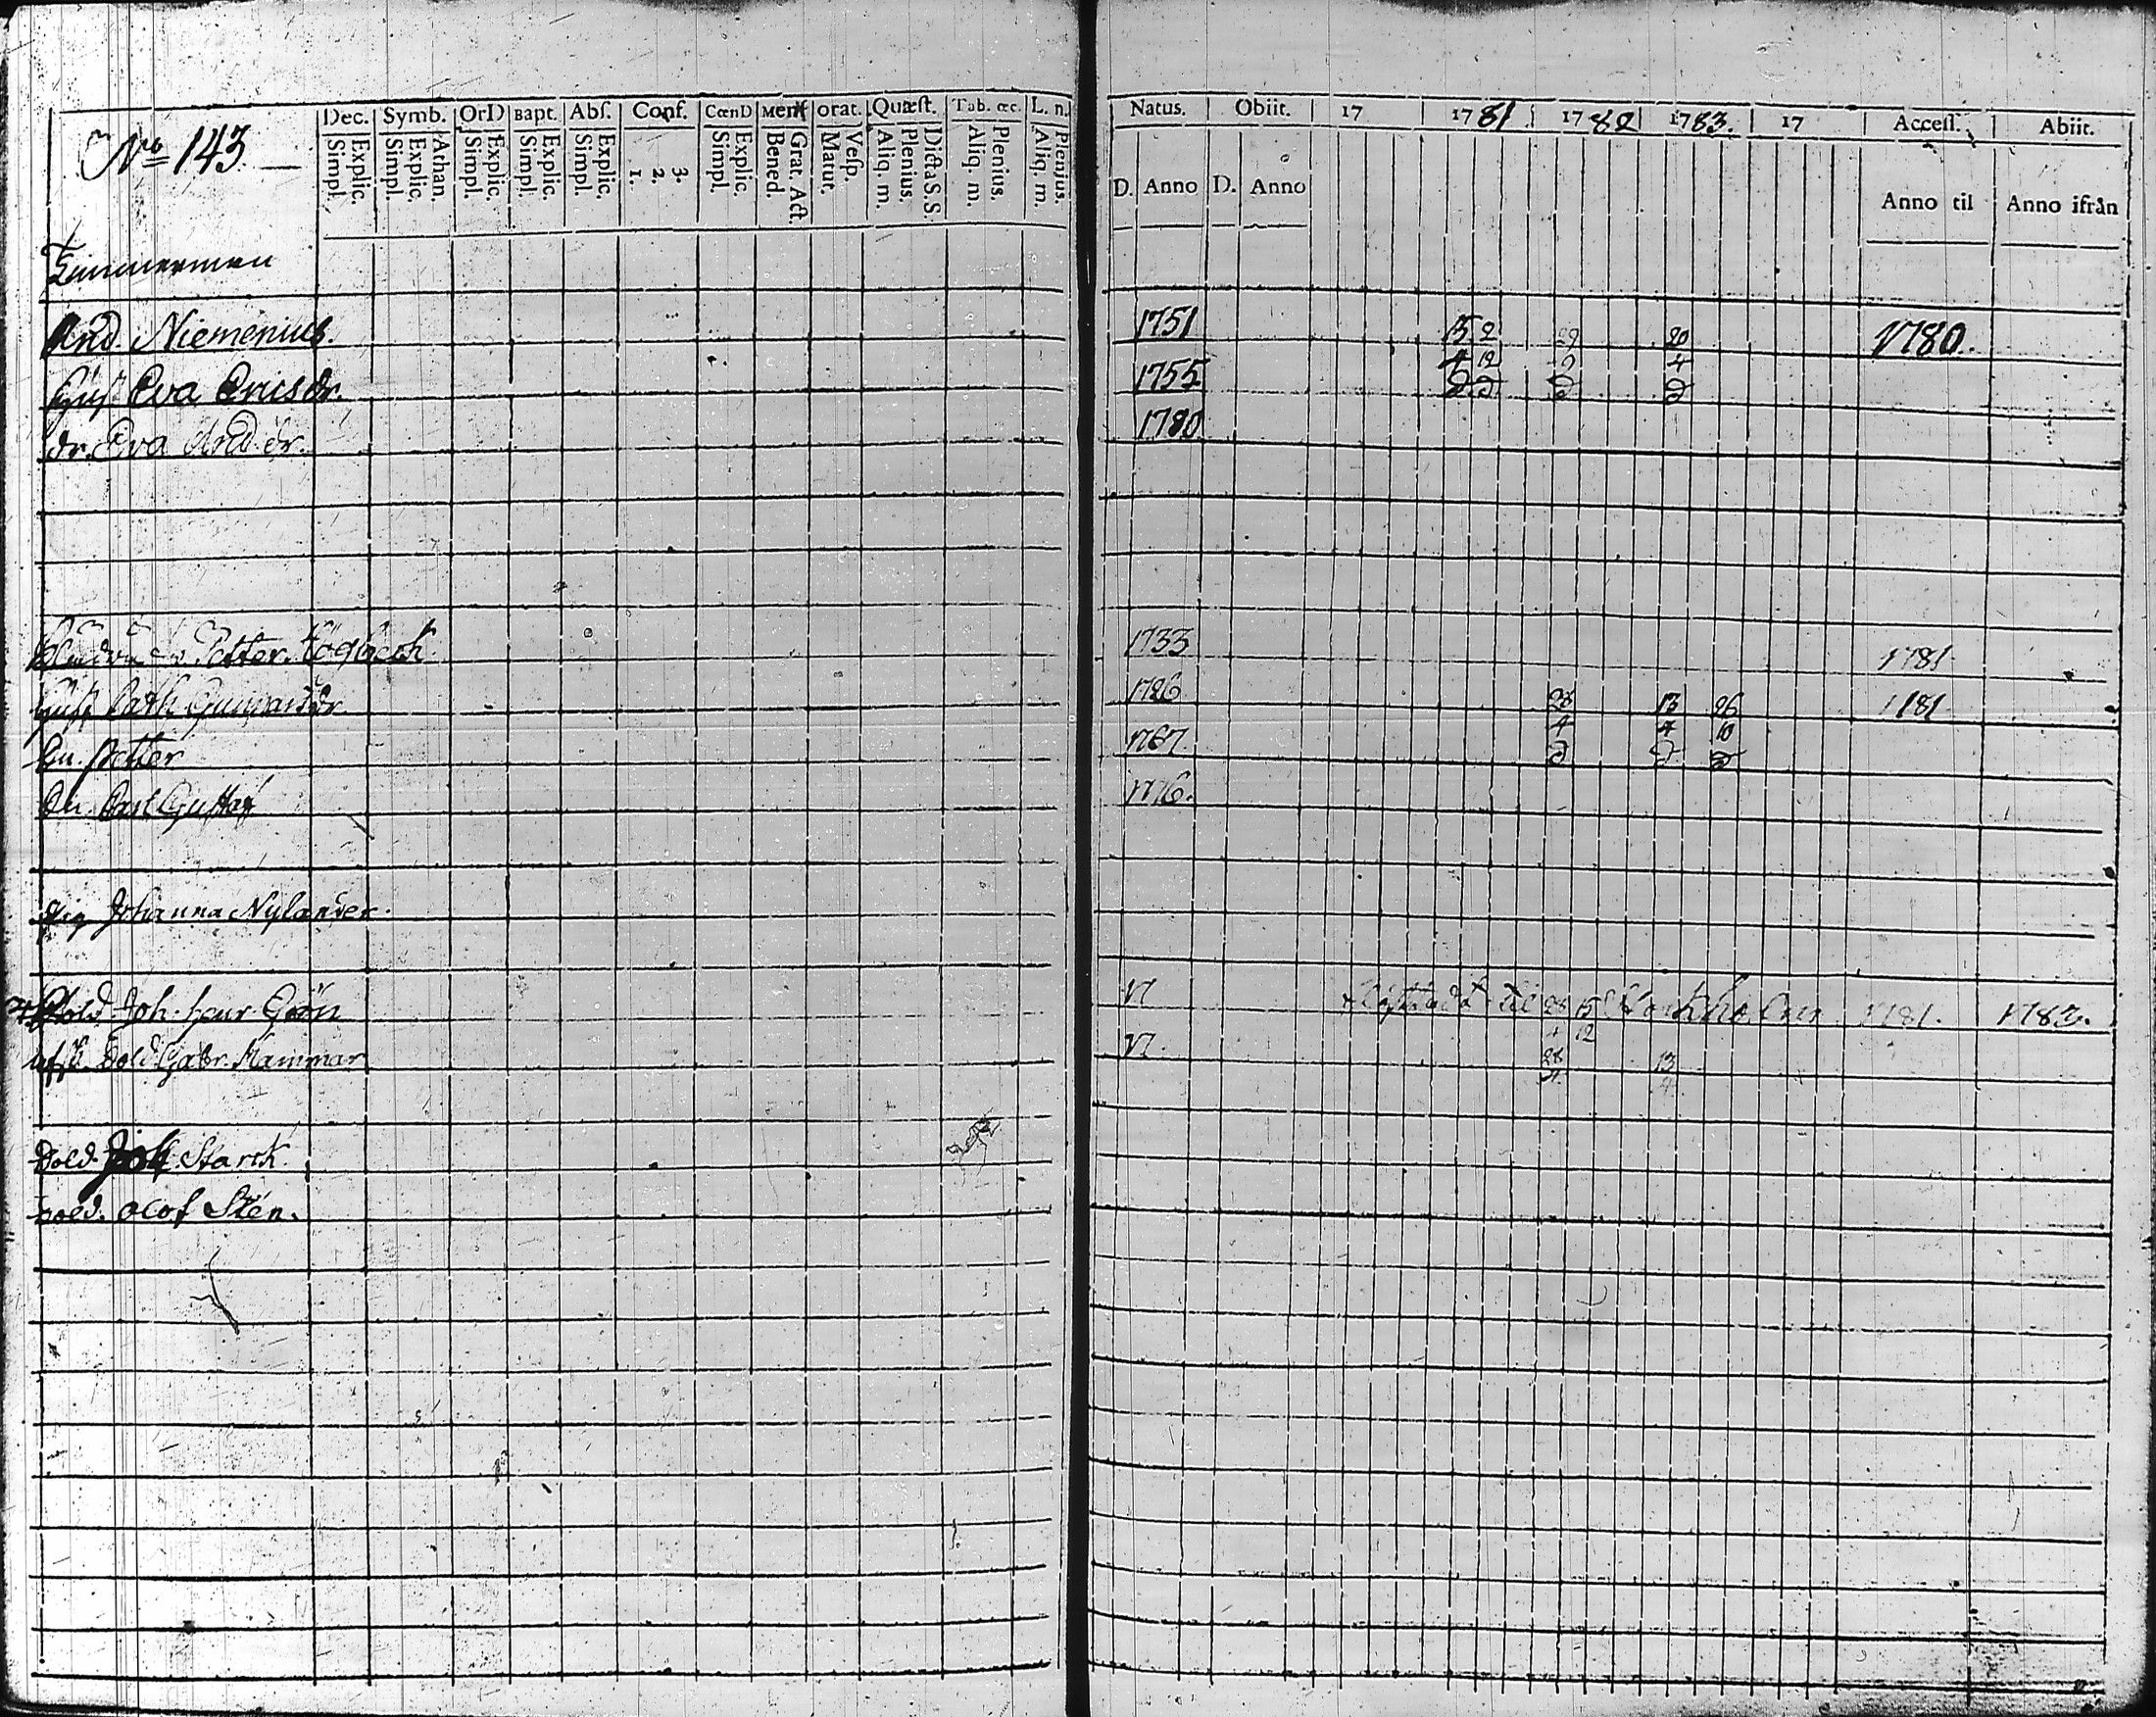 Dec. Symb. OrD Bapt. Abſ. Conf. CœnD Menſ orat. Quæſt. Tab. œc. L. n.
Simpl. Explic. Simpl. Explic. Athan. Simpl. Explic. Simpl. Explic. Simpl. Explic. 1. 2. 3. Simpl. Explic. Bened. Grat. Act. Matut. Veſp. Aliq. m. Plenius. Dicta S. S. Aliq. m. Plenius. Aliq. m. Plenius.
Natus. Obiit. 17 1781. 1782 1783. 17 Acceſſ. Abiit.
D. Anno D. Anno Anno til Anno ifrån
No 143.
Zimmerman
And. Niemenius. 1751 15 2 20 1780.
Hust Eva Ericsdr. 1755 4 12 4
dr. Eva And.dr. 1780
Petter Högbeck 1733 1781
Hust Cath. 1726 28 13 26 1781
Sn. Petter 1767. 4 4 10
Sn. Carl Gustaf 1776.
Pig Johanna Nylander.
Sold. Joh. Henr. Grön 17 til 28 15 Stockholm 1781. 1783.
Sold. Gabr. Hammar 17 28 13
Sold. Joh. Starck
Sold. Olof Sten.